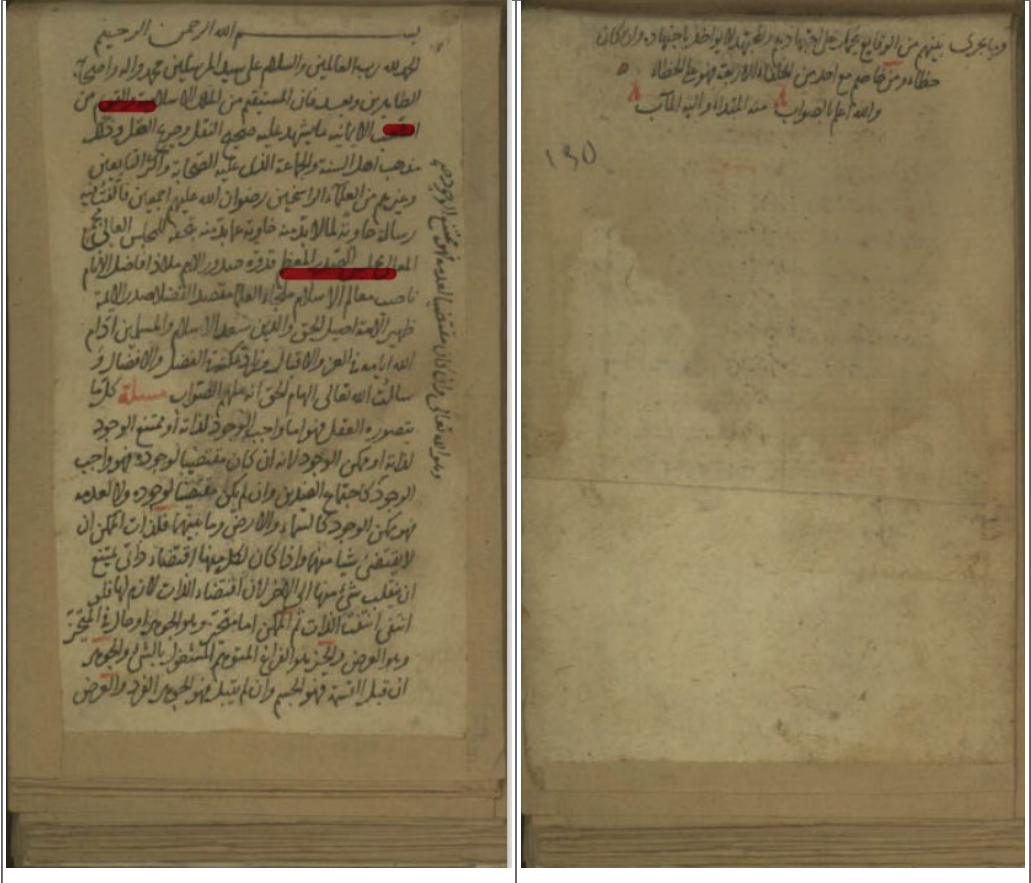 بسم الله الرحمن الرحيم
الحمد لله رب العالمين والسلام على سيد المرسلين محمد واله واصحابه
الطاهرين وبعد فان المستقيم من الملل الاسلامية من
الايمانية ما يشهد عليه صحيح النقل وصريح العقل وذلك
مذهب اهل السنة والجماعة الذى عليه الصحابة واكثر التابعين
وغيرهم من العلماء الراسخين رضوان الله عليهم اجمعين فالفت فيه
رسالة حاوية لما لابد منه خاوية عما بد منه تحفة للمجلس العالى
الصدر المعظم قدوة صدور الامم ملاذ افاضل الأنام
ناصب معالم الاسلام ملجاء العلماء مقصد الفضلاء صدر الائمة
ظهير الأمة اصيل الحق والدين سعد الاسلام والمسلمين ادام
الله والاقبال الفضل والافضال و
سالت الله تعالى الهام الحق انه ملهم الصواب مسئلة كل ما
يتصوره العقل فهو اما واجب الوجود لذاته أو ممتنع الوجود
لذاته او ممكن الوجود لانه ان كان مقتضيا لوجوده فهو واجب
الوجود كاجتماع الضدين وان لم يكن مقتضيا لوجوده ولا لعدمه
فهو ممكن الوجود كالسماء والارض وما بينهما فلذات الممكن ان
لا يقتضى شيا منهما واذا كان لكل منها اقتضاء ذاتى يمتنع
ان ينقلب شئ منها الى الاخر لان اقتضاء الذات لازم لها فلو
انتفى انتفت الذات ثم الممكن اما متحيز وهو الجوهر او حال فى المتحيز
وهو العرض والحيز هو الفراغ المتوهم المشغول بالشئ والجوهر
ان قبل القسمة فهو الجسم وان لم يقبل فهو الجوهر الفرد والعرض
وهو الله تعالى وان كان مقتضيا لعدمه فهو ممتنع الوجود
وما يجرى بينهم من الوقايع يحمل على اجتهادهم والمجتهد لا يواخذ باجتهاده وان كان
خطاء ومن خاصم مع احد من الخلفاء الاربعة فهو على الخطاء
والله أعلم بالصواب منه المبتدا واليه المآب